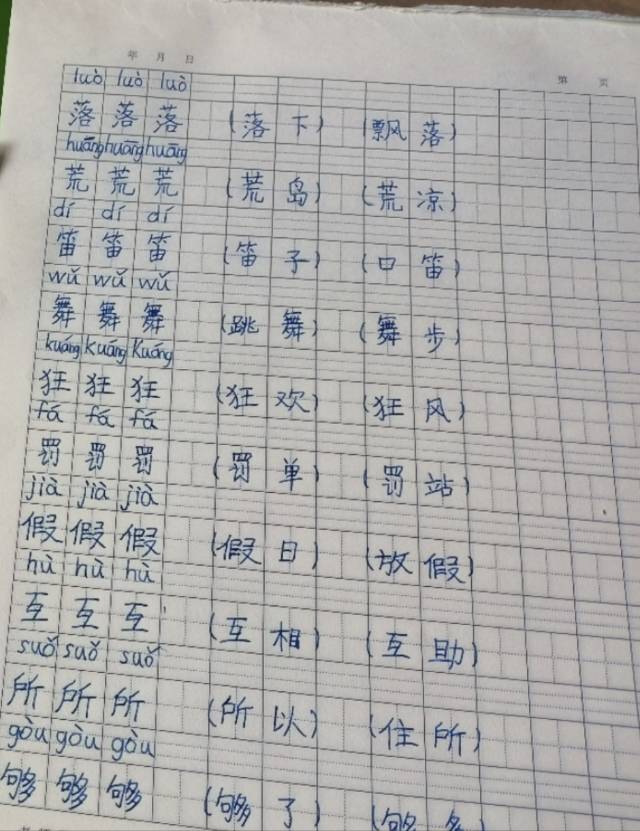 年 月 日
第 页
luò luò luò
落 落 落 (落 下) (飘 落)
huāng huāng huāng
荒 荒 荒 (荒 岛) (荒 凉)
dí dí dí
笛 笛 笛 (笛 子) (口 笛)
wǔ wǔ wǔ
舞 舞 舞 (跳 舞) (舞 步)
kuáng kuáng kuáng
狂 狂 狂 (狂 欢) (狂 风)
fá fá fá
罚 罚 罚 (罚 单) (罚 站)
jià jià jià
假 假 假 (假 日) (放 假)
hù hù hù
互 互 互 (互 相) (互 助)
suǒ suǒ suǒ
所 所 所 (所 以) (住 所)
gòu gòu gòu
够 够 够 (够 了) (够 多)